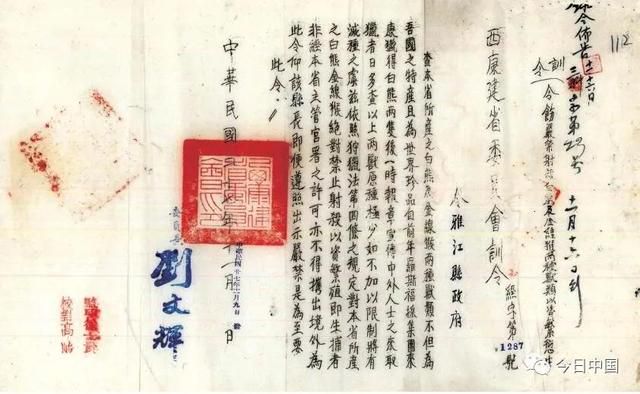 112
西康建省委員會訓令
經字第1287號
令雅江縣政府
查本省所產之白熊及金線猴兩種獸類不但為
吾國之特產且為世界珍品自前年羅斯福後集團來
康獵得白熊兩隻後一時報章宣傳中外人士之來取
獵者日多查以上兩獸原種極少如不加以限制將有
滅種之虞茲依照狩獵法第四條之規定對本省所產
之白熊金線猴絕對禁止射殺以資繁殖即生捕者
非經本省主管官署之許可亦不得攜出境外為
此令仰該縣長即便遵照出示嚴禁是為至要
此令
中華民國二十七年十一月 日
委員長
劉文輝
十一月十六日到
今日中国